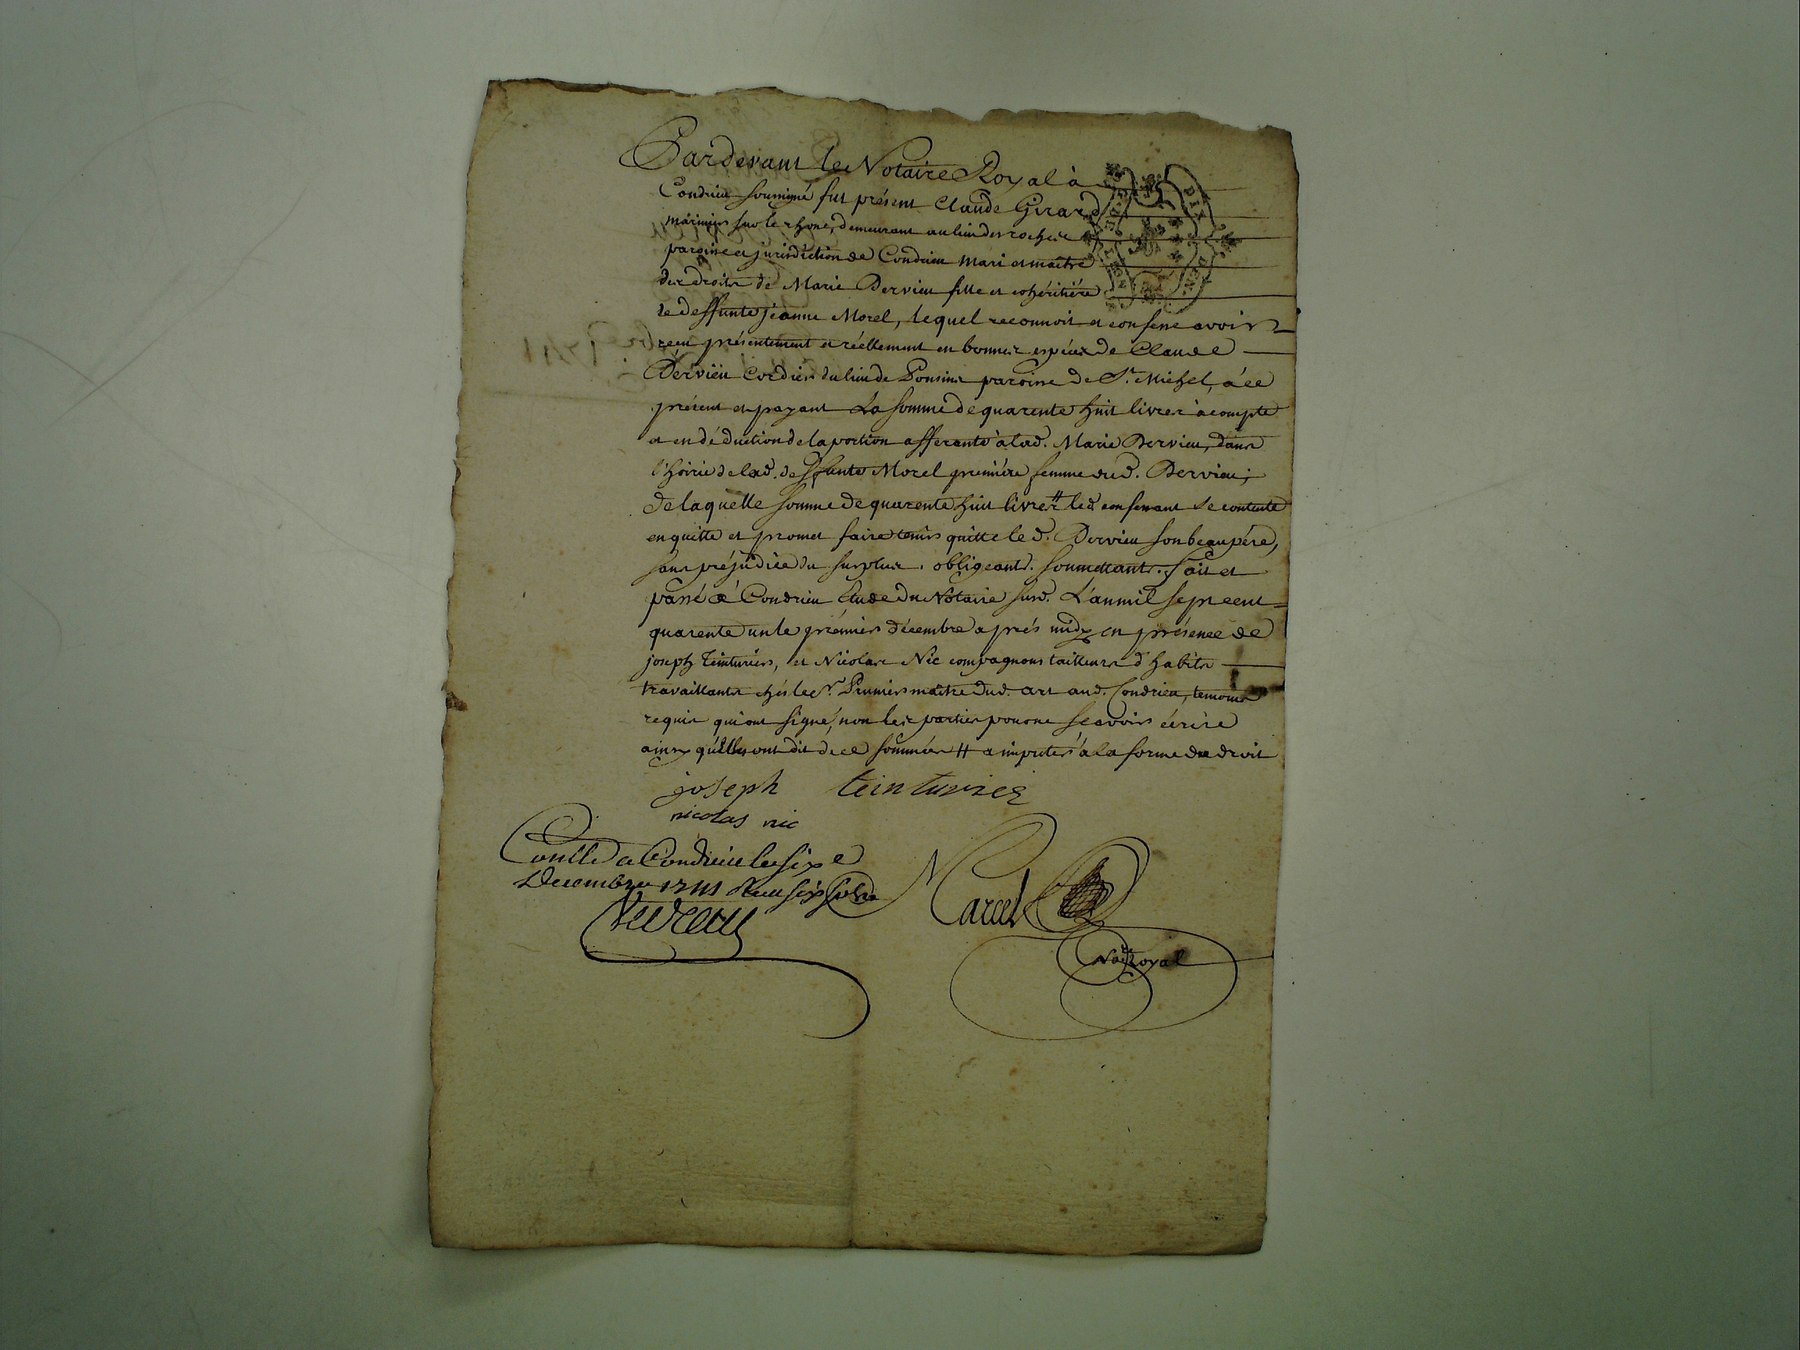 Pardevant le Notaire Royal à
Condrieu soussigné fut présent Claude Girard
marinier sur le rhone, demeurant au lieu des roches
paroisse et jurisdiction de Condrieu mari et maitre
des droits de Marie Dervieu fille et cohéritière
de deffunte jeanne Morel, lequel reconnoit et confesse avoir
reçu présentement et réellement en bonnes espèces de Claude
Dervieu Cordier du lieu de Ponsins paroisse de St. Michel, à ce
présent et payant La somme de quarente huit livres à compte
et en déduction de la portion afferante à lad. Marie Dervieu, dans
l'hoirie de lad. deffunte Morel première femme dud. Dervieu;
de laquelle somme de quarente huit livres # led confessant se contente
en quitte et promet faire tenir quitte led. Dervieu son beaupére,
sans préjudice du surplus. obligeant. soumettant. fait et
passé à Condrieu Etude du Notaire susd. L'an mil sept cent
quarente un le premier décembre après midy en présence de
joseph teinturier, et Nicolas Nic compagnons tailleurs d'habits
travaillants chés le Sr. Prunier maitre dud. art aud. Condrieu, temoins
requis qui ont signé, non les parties pour ne sçavoir écrire
ainsy qu'elles ont dit de ce sommées # a imputer à la forme du droit
joseph teinturier
nicolas nic
Conllé a Condrieu le six e
Decembre 1741 Reçu six sols
Marcel
Nore Royal